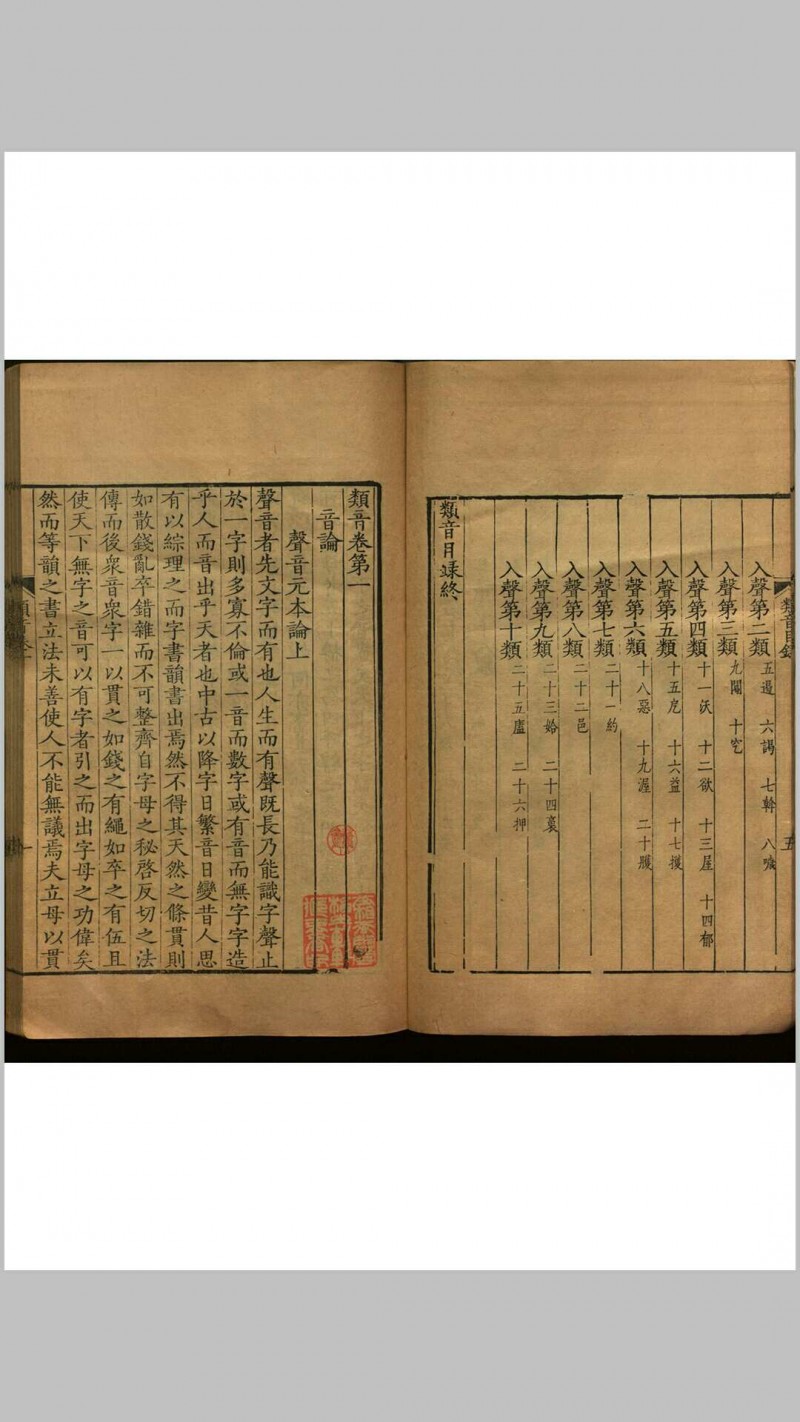 類音目錄
五
入聲第二類 五遏 六謁 七幹 八噦
入聲第三類 九閣 十穵
入聲第四類 十一沃 十二欲 十三屋 十四郁
入聲第五類 十五戹 十六益 十七擭
入聲第六類 十八惡 十九渥 二十雘
入聲第七類 二十一約
入聲第八類 二十二邑
入聲第九類 二十三姶 二十四裛
入聲第十類 二十五㕎 二十六押
類音目录終
類音卷第一
音論
聲音元本論上
聲音者先文字而有也人生而有聲既長乃能識字聲止
於一字則多寡不倫或一音而數字或有音而無字字造
乎人而音出乎天者也中古以降字日繁音日變昔人思
有以綜理之而字書韻書出焉然不得其天然之條貫則
如散錢亂卒錯雜而不可整齊自字母之秘啓反切之法
傳而後衆音衆字一以貫之如錢之有繩如卒之有伍且
使天下無字之音可以有字者引之而出字母之功偉矣
然而等韻之書立法未善使人不能無議焉夫立母以貫
類音卷一
一